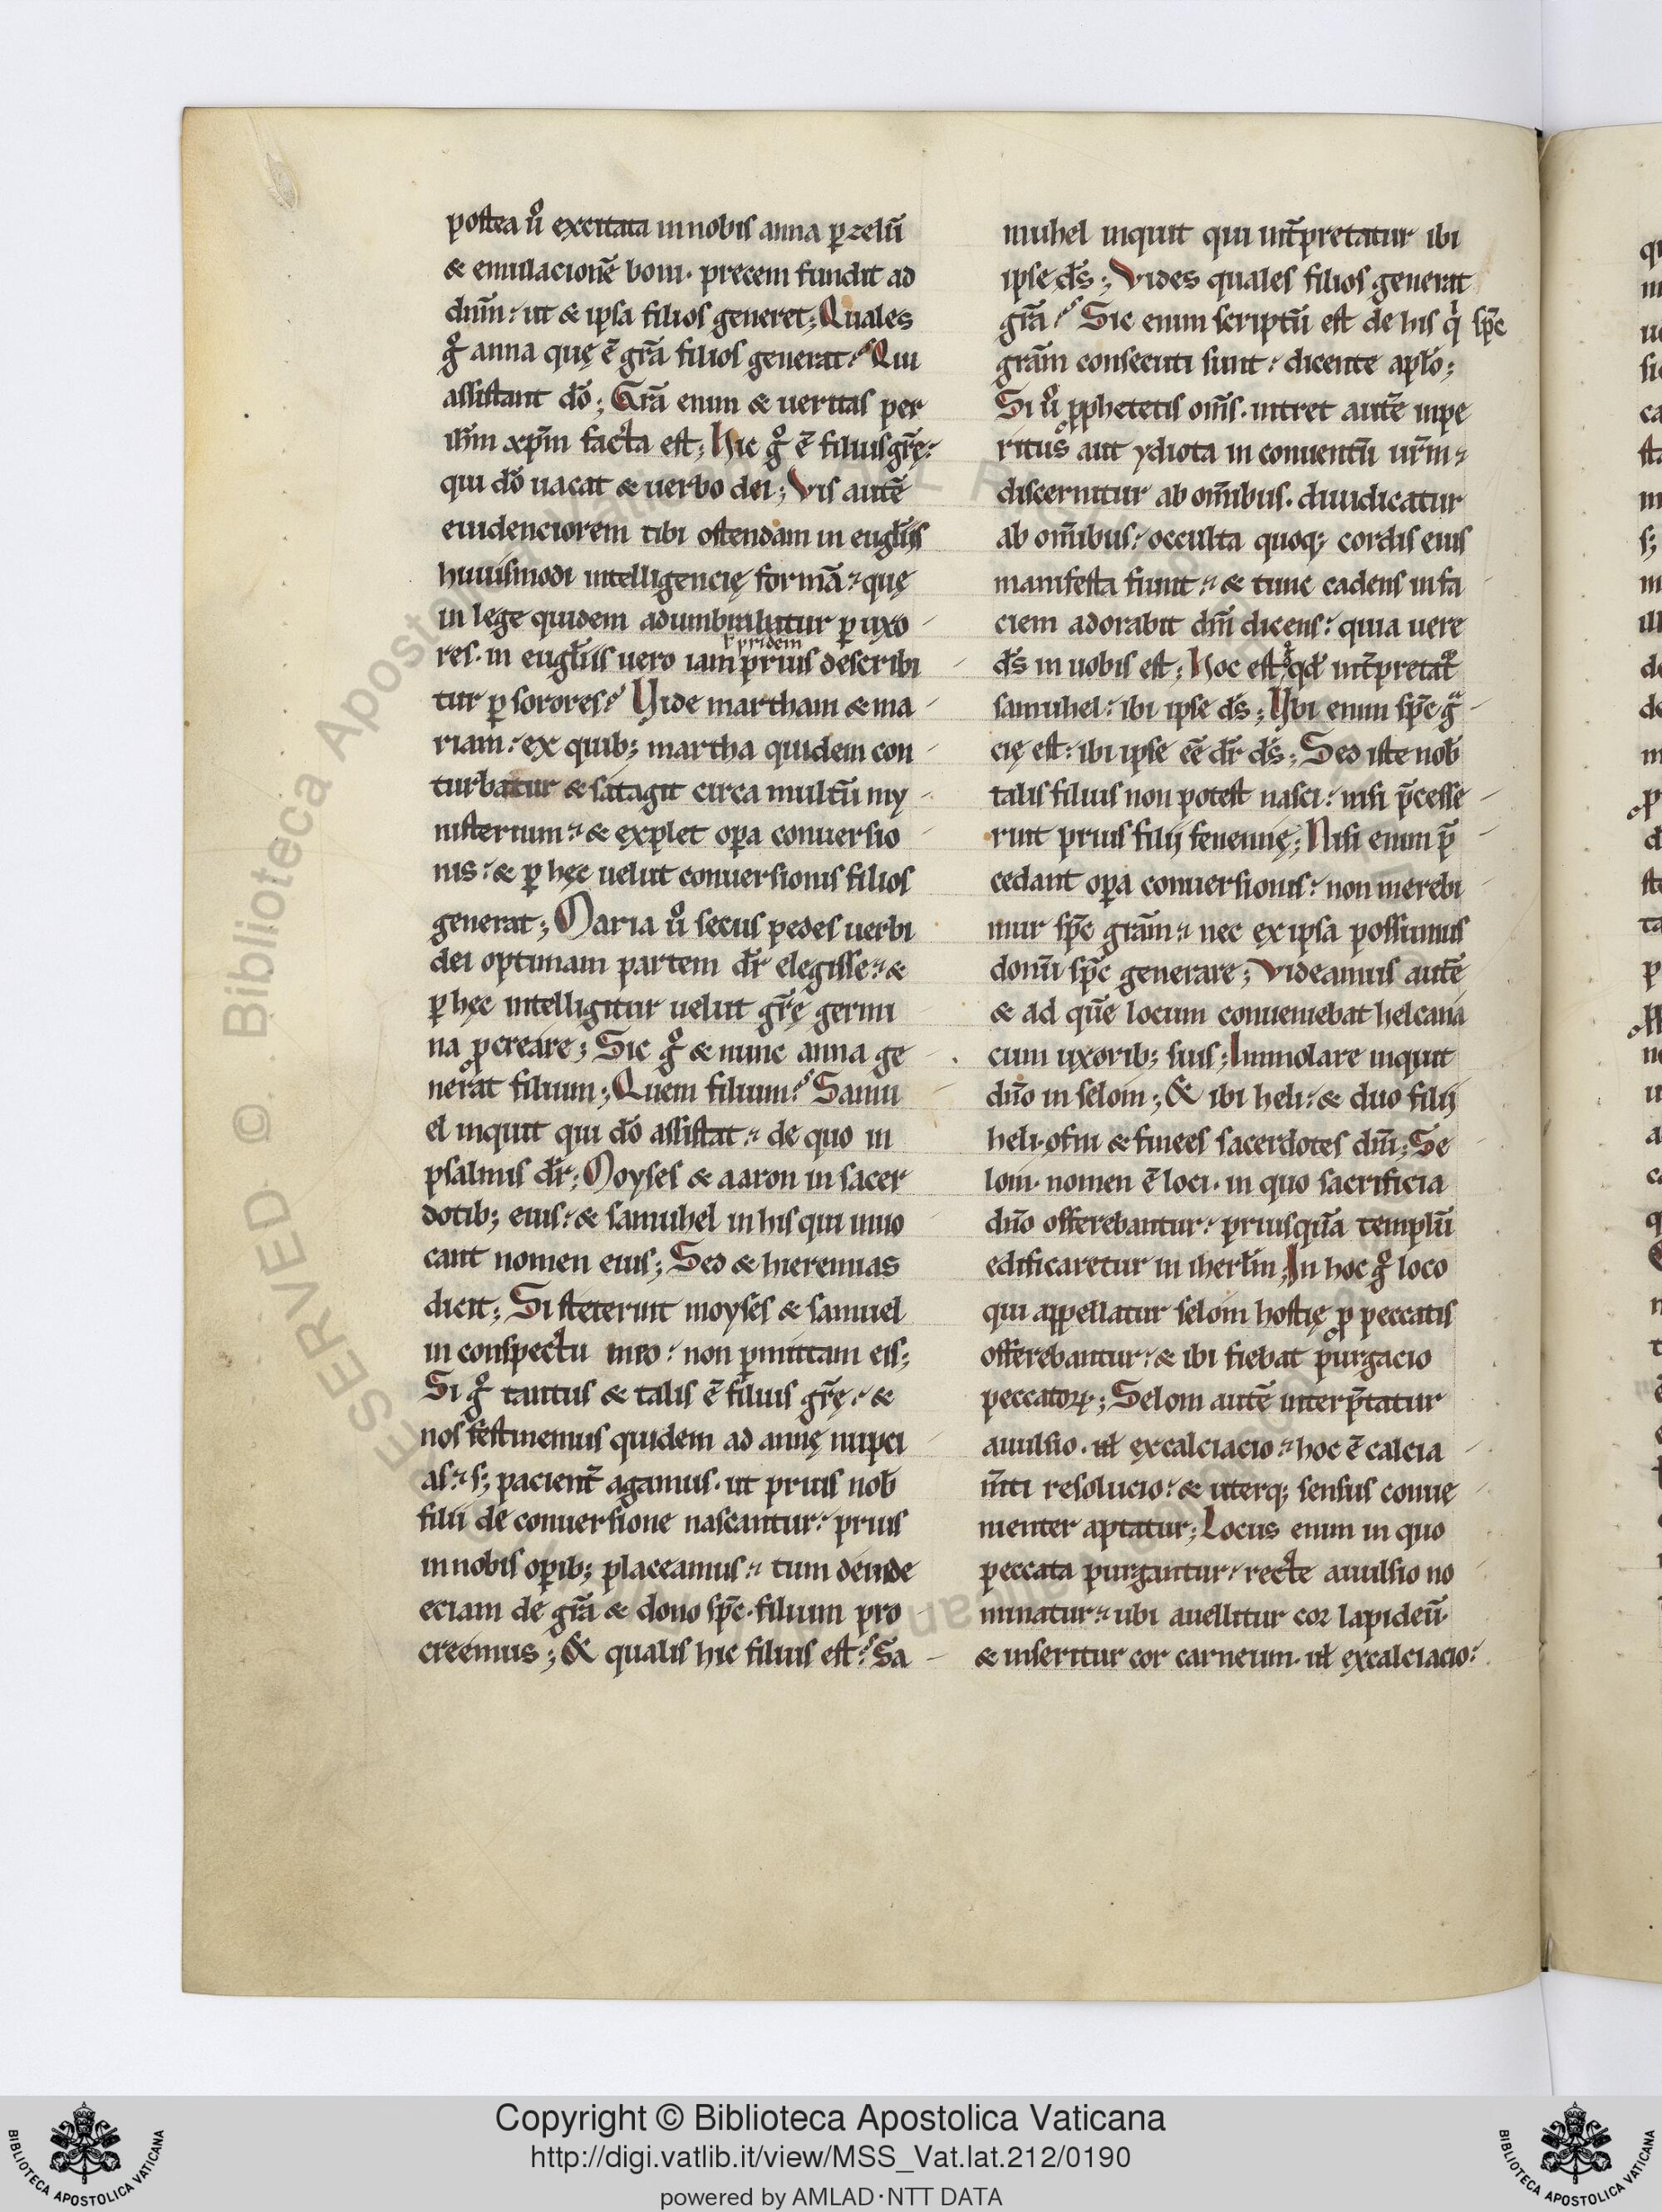 postea ů excitata in nobis anna ꝑ zelū
& emulacionē boni· precem fundit ad
dnm̄· ut & ipsa filios generet; Quales
gͦ anna quę ē grā filios generat? Qui
assistant dō; Grā enim & ueritas per
ihm̄ xpm̄ facta est; Hic gͦ ē filius grę̄·
qui dō uacat & uerbo dei; Vis autē
euidenciorem tibi ostendam in euglīis
huiusmodi intelligencię formā· quę
in lege quidem adumbratur ꝑ uxo
res· in euglīis uero iam prius describi
ł pridem
tur ꝑ sorores? Vide martham & ma
riam· ex quib; martha quidem con
turbatur & satagit circa multū my
nisterium· & explet oꝑa conuersio
nis· & ꝑ hęc uelut conuersionis filios
generat; Maria ů secus pedes uerbi
dei optimam partem dr̄ elegisse· &
ꝑ hęc intelligitur uelut grę̄ germi
na ꝓcreare; Sic gͦ & nunc anna ge
nerat filium; Quem filium? Samu
el inquit qui dō assistat· de quo in
psalmis dr̄; Moyses & aaron in sacer
dotib; eius· & samuhel in his qui inuo
cant nomen eius; Sed & hieremias
dicit; Si steterint moyses & samuel
in conspectu meo· non ꝑmittam eis;
Si gͦ tantus & talis ē filius grę̄· &
nos festinemus quidem ad annę nupci
as· s; pacient̄ agamus· ut prius nob̄
filii de conuersione nascantur· prius
in nobis oꝑib; placeamus· tum deinde
eciam de grā & dono spc̄· filium pro
creemus; & qualis hic filius est? Sa
muhel inquit qui int̄pretatur ibi
ipse ds̄; Vides quales filios generat
grā? Sic enim scriptū est de his q̍ spc̄
grām consecuti sunt· dicente aplō;
Si ů ꝓphetetis om̄s· intret autē inpe
ritus aut ydiota in conuentū ur̄m·
discernitur ab om̄ibus· diiudicatur
ab om̄ibus· occulta quoq; cordis eius
manifesta fiunt· & tunc cadens in fa
ciem adorabit dm̄ dicens· quia uere
ds̄ in uobis est; Hoc est qd̄ int̄pretat᷑
samuhel· ibi ipse ds̄; Vbi enim spc̄ gͣ
cię est· ibi ipse eē dr̄ ds̄; Sed iste nob̄
talis filius non potest nasci· nisi p̄cesse
rint prius filij fenennę; Nisi enim p̄
cedant oꝑa conuersionis· non merebi
mur spc̄ grām· nec ex ipsa possumus
donū spc̄ generare; Videamus autē
& ad quē locum conueniebat helcana
cum uxorib; suis; Immolare inquit
dn̄o in selom; & ibi heli· & duo filij
heli· ofni & finees sacerdotes dn̄i; Se
lom· nomen ē loci· in quo sacrificia
dn̄o offerebantur· priusquā templū
edificaretur in iherlm̄; In hoc gͦ loco
qui appellatur selom hostię ꝓ peccatis
offerebantur· & ibi fiebat purgacio
peccatoꝝ; Selom autē interp̄tatur
auulsio· ul̄ excalciacio· hoc ē calcia
m̄ti resolucio· & uterq; sensus conue
nienter aptatur; Locus enim in quo
peccata purgantur· recte auulsio no
minatur· ubi auellitur cor lapideū·
& inseritur cor carneum· ul̄ excalciacio·
Copyright © Biblioteca Apostolica Vaticana
http://digi.vatlib.it/view/MSS_Vat.lat.212/0190
powered by AMLAD·NTT DATA